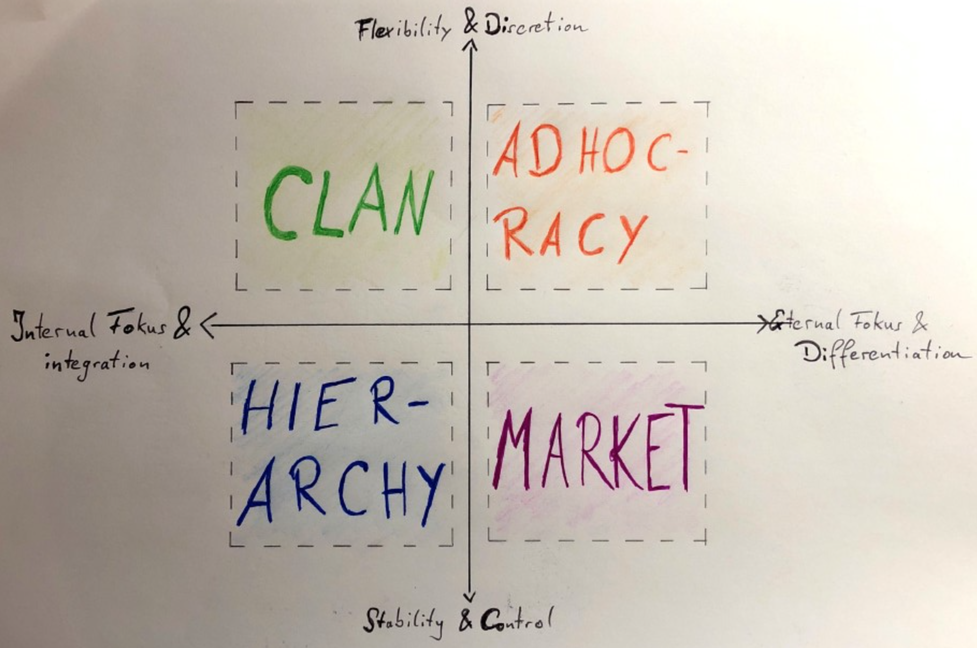 Flexibility & Discretion
CLAN
ADHOC-
RACY
Internal Fokus &
integration
External Fokus &
Differentiation
HIER-
ARCHY
MARKET
Stability & Control